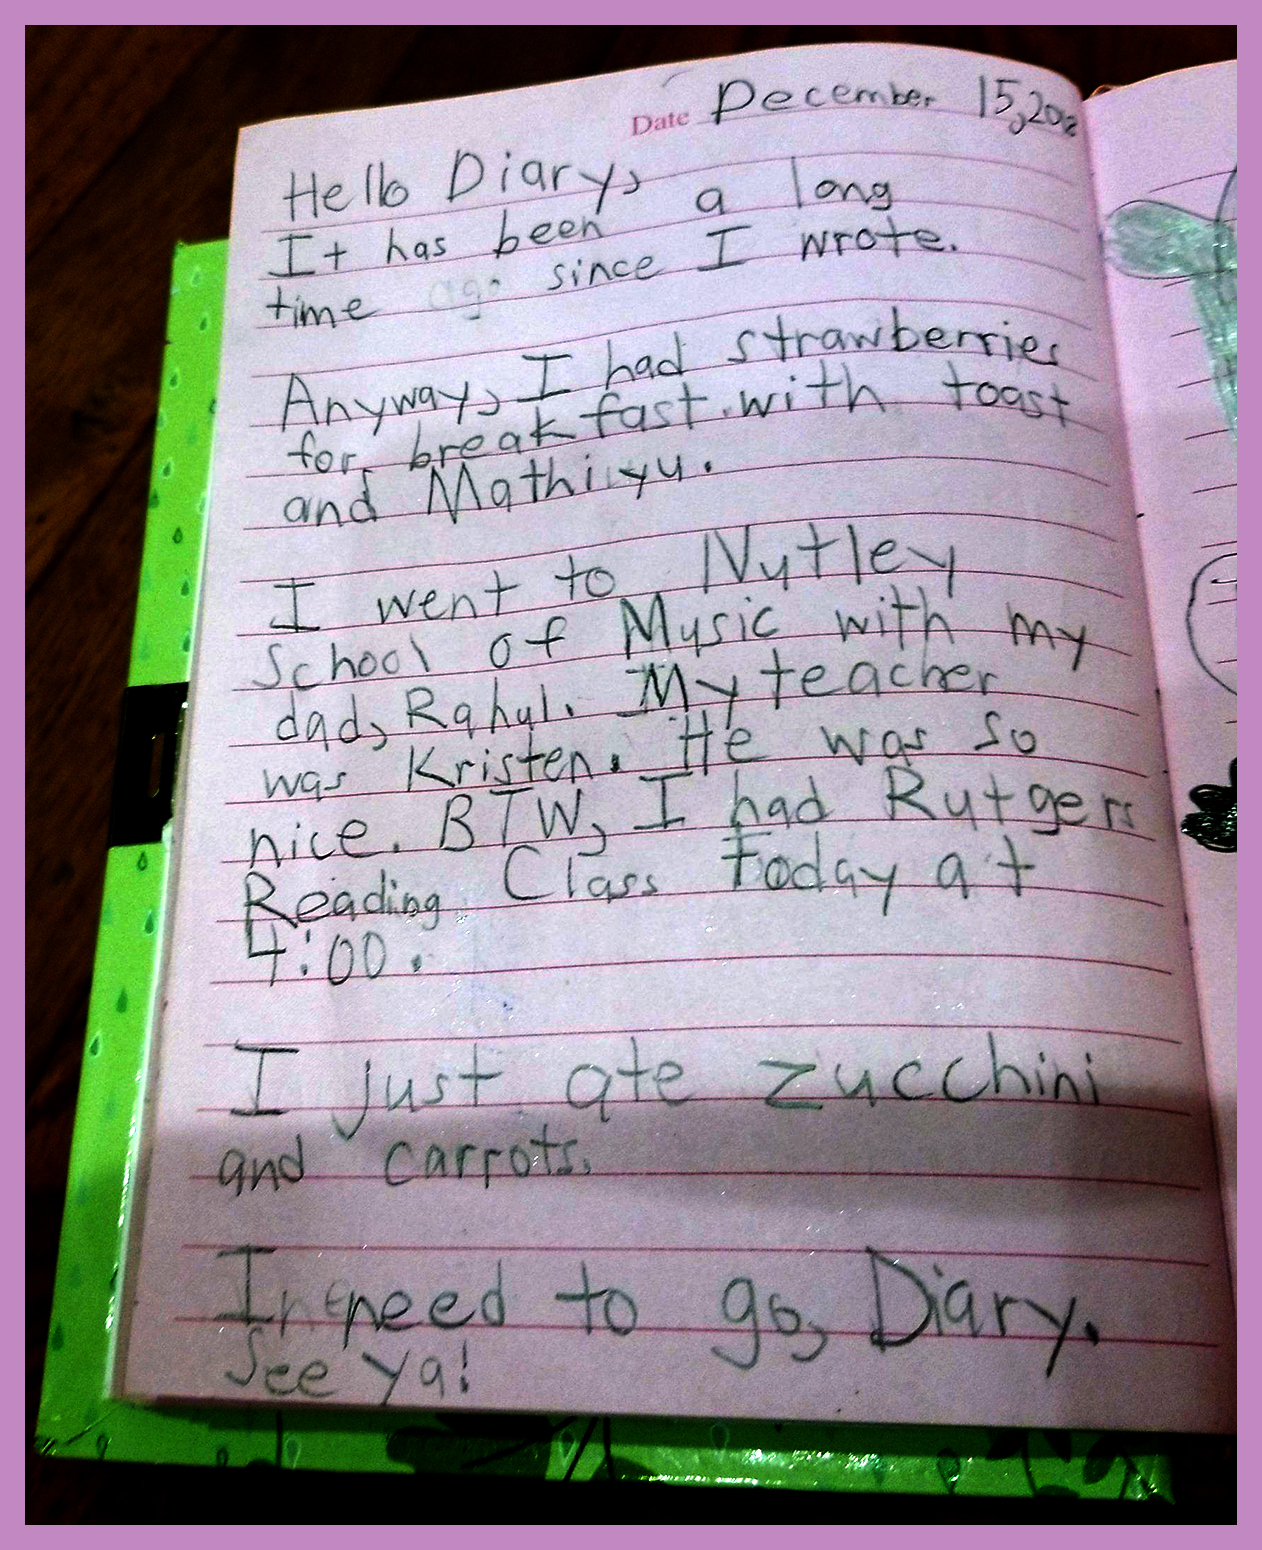 Date December 15, 2018
Hello Diary,
It has been a long
time ago since I wrote.
Anyway, I had strawberries
for breakfast with toast
and Mathiyu.
I went to Nutley
School of Music with my
dad, Rahul. My teacher
was Kristen. He was so
nice. BTW, I had Rutgers
Reading Class today at
4:00.
I just ate zucchini
and carrots.
I need to go, Diary.
See ya!